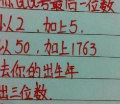 后最后一位数
以2，加上5.
以50，加上1763
去你的出生年
出三位数.